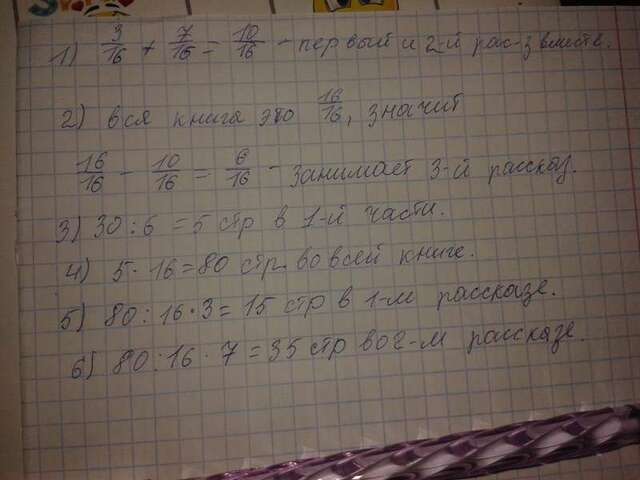 1) 3/16 + 7/16 = 10/16 - первый и 2-й рас-з вместе.
2) вся книга это 16/16, значит
16/16 - 10/16 = 6/16 - занимает 3-й рассказ.
3) 30:6 = 5 стр в 1-й части.
4) 5·16 = 80 стр. во всей книге.
5) 80:16·3 = 15 стр в 1-м рассказе.
6) 80:16·7 = 35 стр во 2-м рассказе.